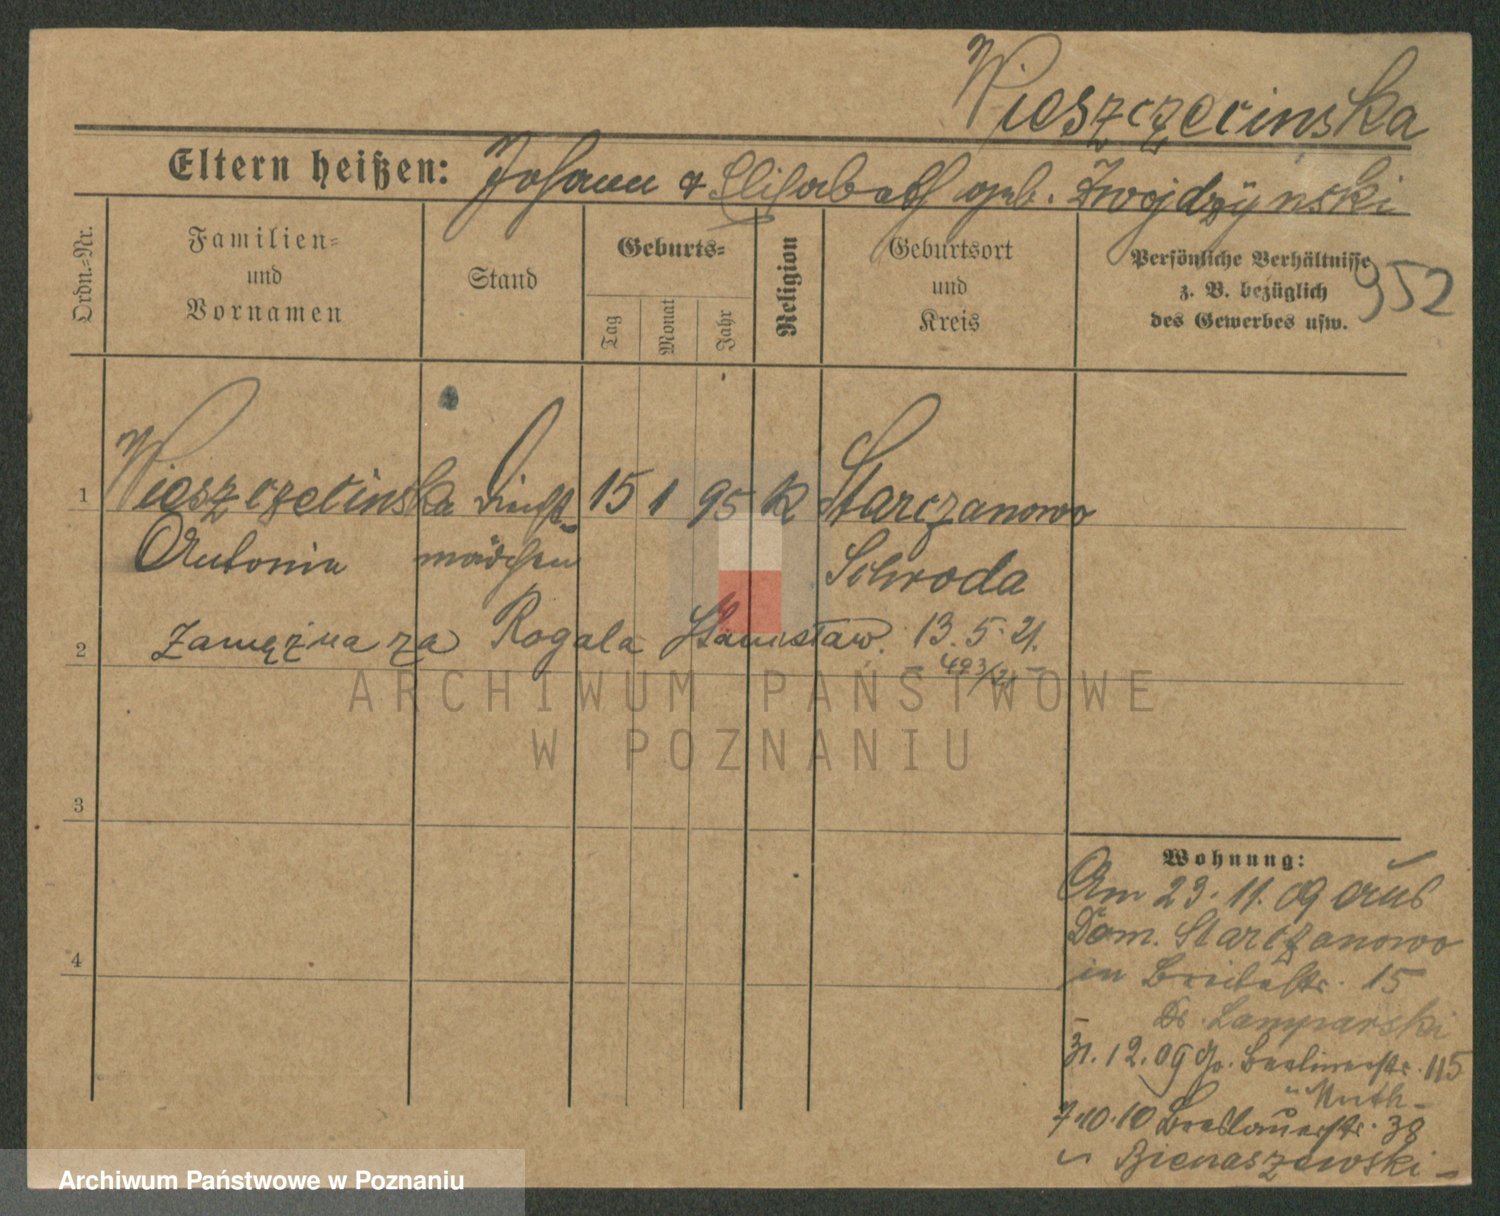 Wieszczecinska
Eltern heißen: Johann & Elisabeth geb. Zwojdzynski
Ordn.-Nr.
Familien-
und
Vornamen
Stand
Geburts-
Tag
Monat
Jahr
Religion
Geburtsort
und
Kreis
Persönliche Verhältnisse
z. B. bezüglich
des Gewerbes usw.
352
1 Wieszczecinska Dienst- 15 1 95 K Starczanowo
Antonia mädchen Schroda
2 zamężna za Rogala Stanisław. 13.5.21.
493/21
3
4
Wohnung:
Am 23.11.09 aus
Dom. Starczanowo
in Breitestr. 15
Lamparski
31.12.09 Berlinerstr. 115
7.10.10 Breslauerstr. 38
Bienaszewski
ARCHIWUM PAŃSTWOWE
W POZNANIU
Archiwum Państwowe w Poznaniu